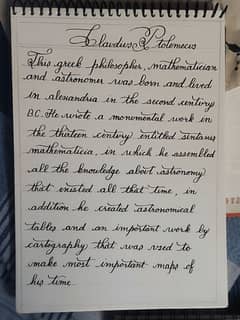 Claudius Ptolemaeus
This greek philosopher, mathematician
and astronomer was born and lived
in alexandria in the second century
B.C. He wrote a monumental work in
the thirteen century entitled sintaxis
mathematicia, in which he assembled
all the knowledge about astronomy
that existed all that time, in
addition he created astronomical
tables and an important work by
cartography that was used to
make most important maps of
his time